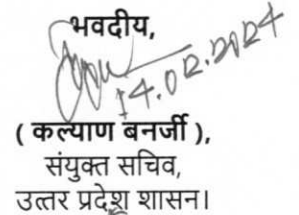 भवदीय,
14.02.2024
( कल्याण बनर्जी ),
संयुक्त सचिव,
उत्तर प्रदेश शासन।